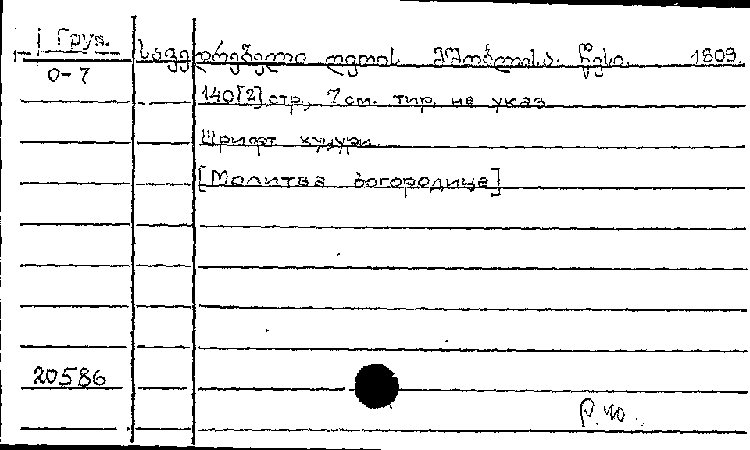 Груз.
О-7
სავედრებელი ღვთის მშობლისა. წესი. 1809.
140[2] стр, 7 см. тир. не указ
Шрифт хуцури.
[Молитва богородице]
20586